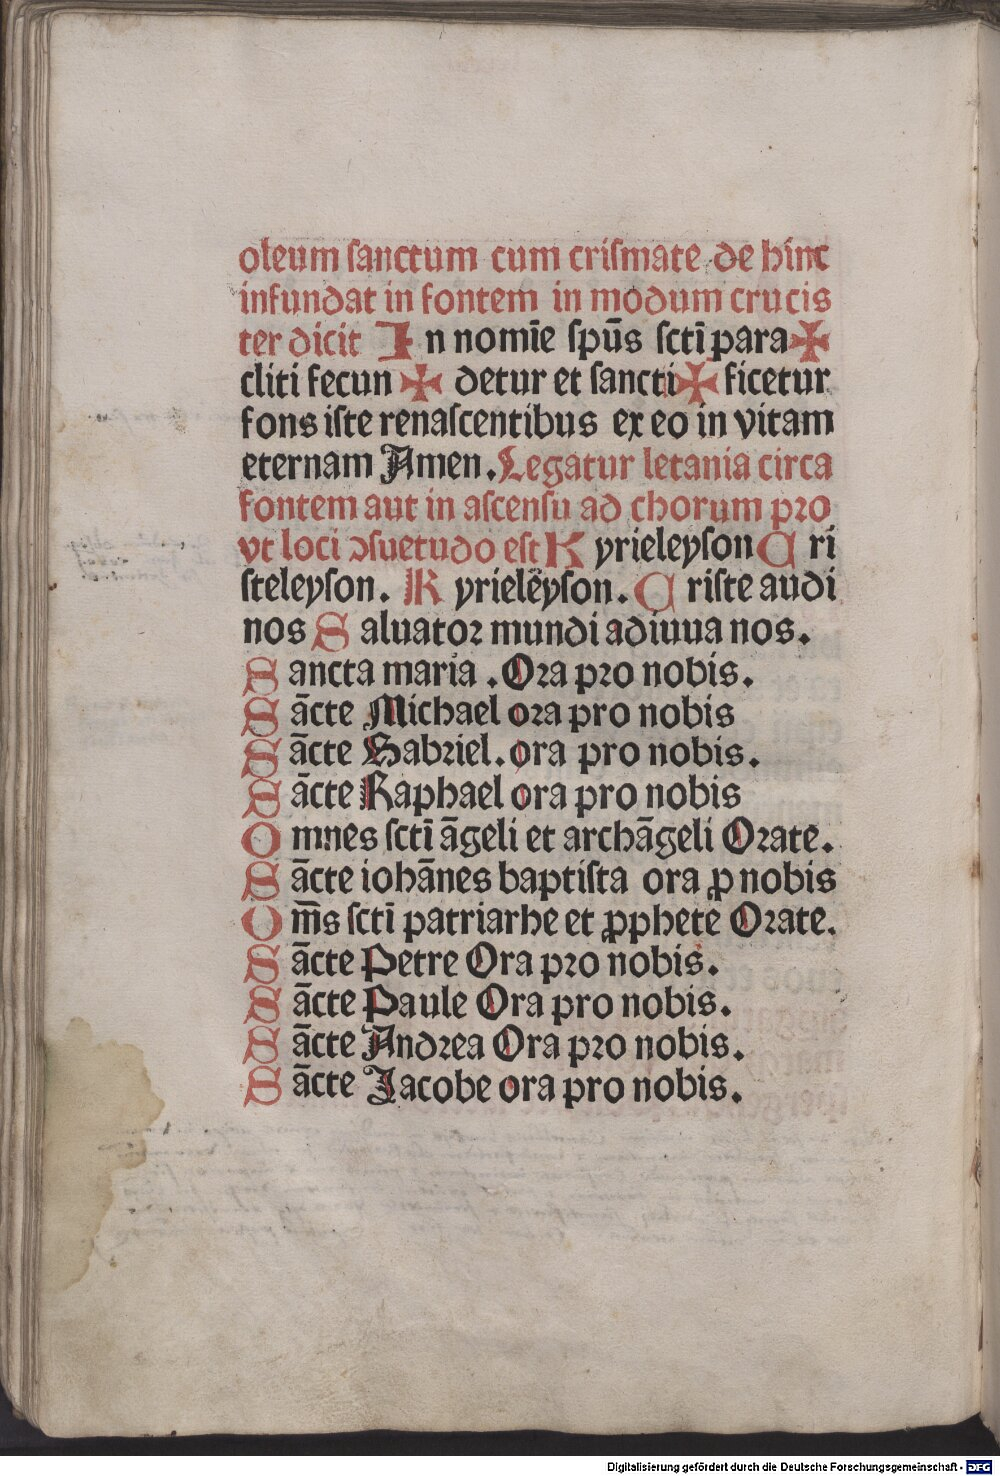 oleum sanctum cum crismate de hinc
infundat in fontem in modum crucis
ter dicit In nomīe spūs sctī para✠
cliti fecun✠detur et sancti✠ficetur
fons iste renascentibus ex eo in vitam
eternam Amen. Legatur letania circa
fontem aut in ascensu ad chorum pro
vt loci ↄsuetudo est Kyrieleyson Cri
steleyson. Kyrielēyson. Criste audi
nos Saluator mundi adiuua nos.
Sancta maria. Ora pro nobis.
Sācte Michael ora pro nobis
Sācte Gabriel. ora pro nobis.
Sācte Raphael ora pro nobis
Omnes sctī āgeli et archāgeli Orate.
Sācte iohānes baptista ora ꝓ nobis
Om̄s sctī patriarhe et ꝓphete Orate.
Sācte Petre Ora pro nobis.
Sācte Paule Ora pro nobis.
Sācte Andrea Ora pro nobis.
Sācte Jacobe ora pro nobis.
Digitalisierung gefördert durch die Deutsche Forschungsgemeinschaft - DFG